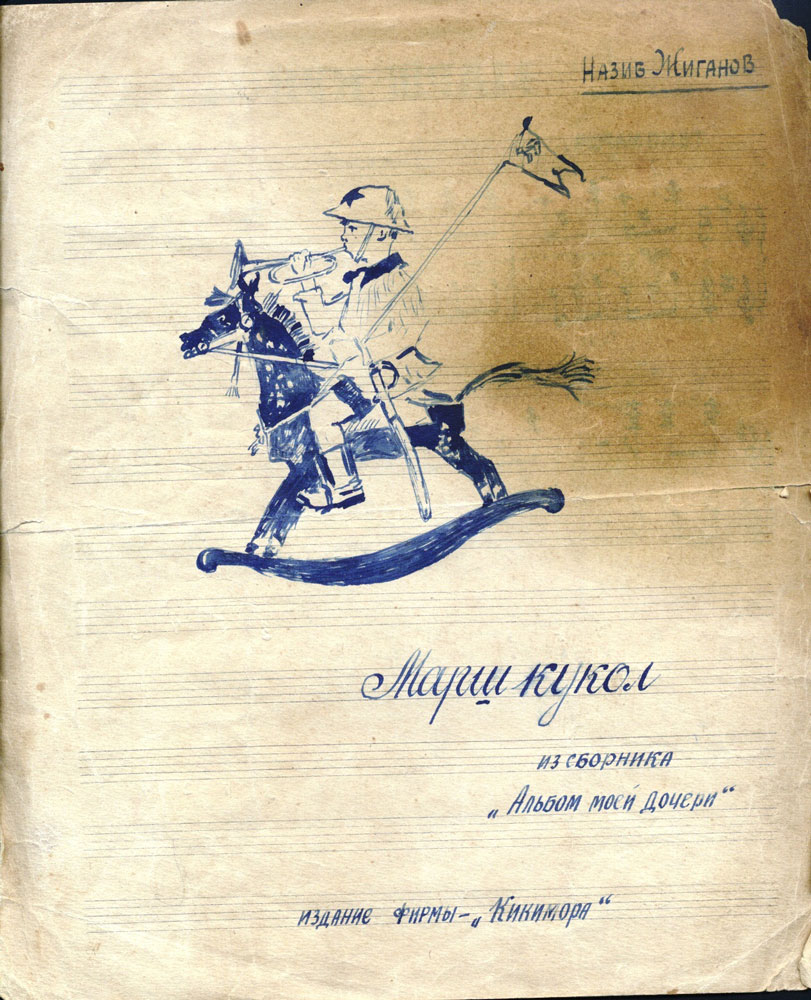 Назиб Жиганов
Марш кукол
из сборника
„Альбом моей дочери“
издание фирмы – „Кикимора“